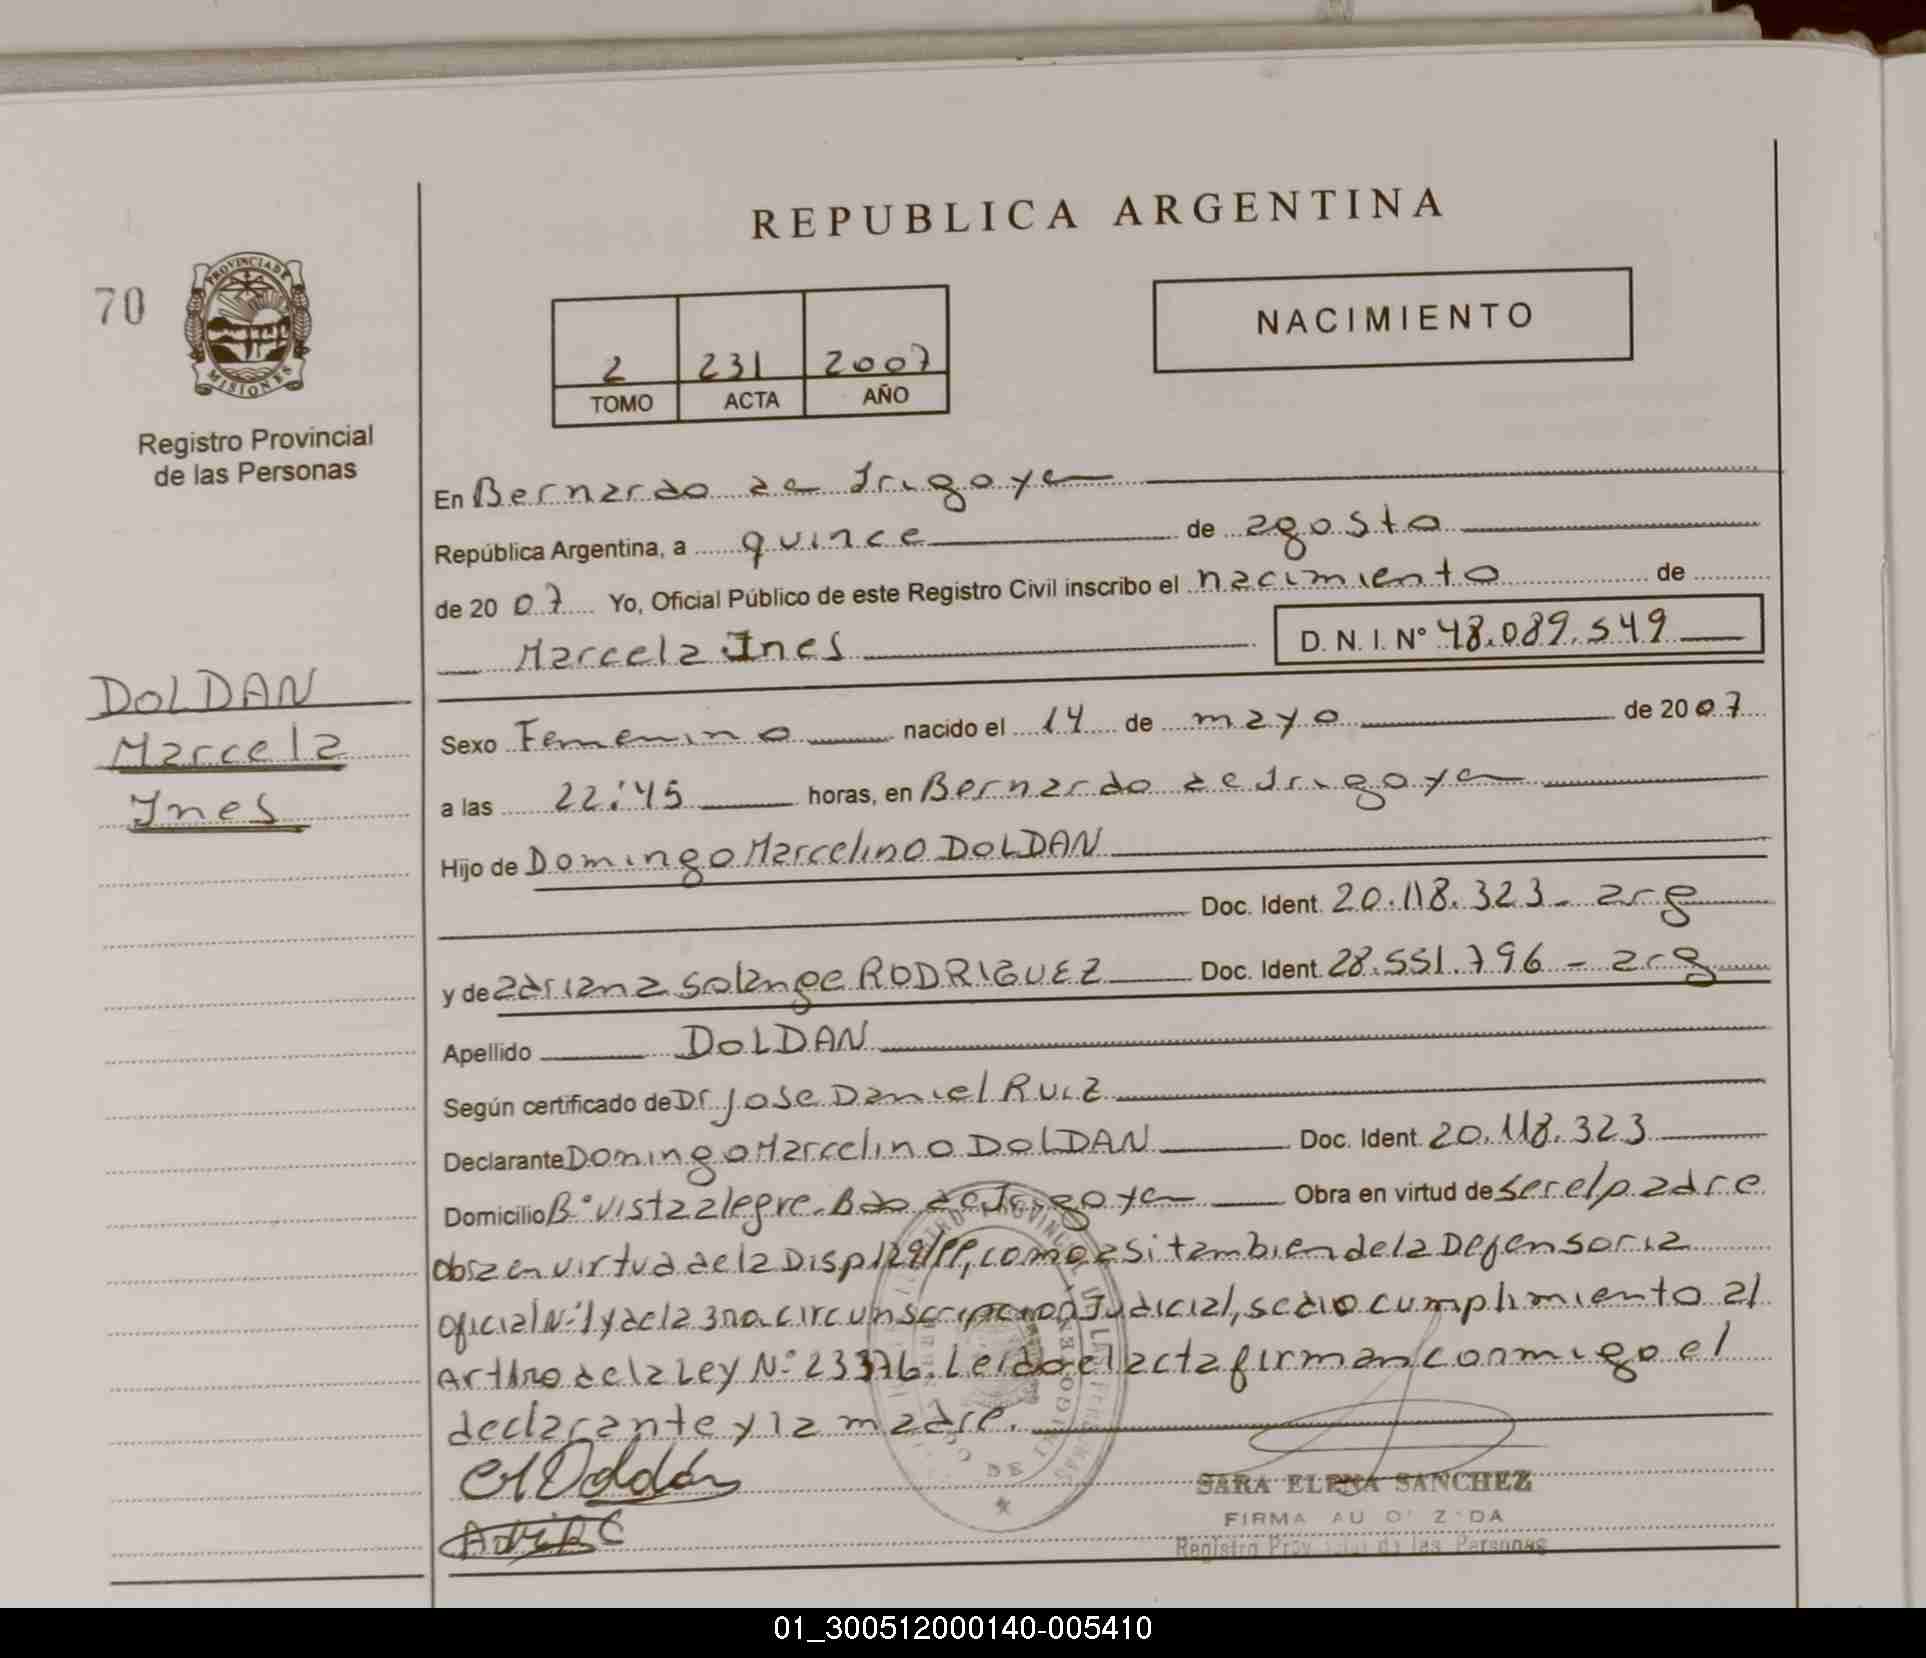 REPUBLICA ARGENTINA
70
PROVINCIA DE
MISIONES
Registro Provincial
de las Personas
NACIMIENTO
2 231 2007
TOMO ACTA AÑO
En Bernardo de Irigoyen
República Argentina, a quince de agosto
de 20 07 Yo, Oficial Público de este Registro Civil inscribo el nacimiento de
Marcela Ines D. N. I. N° 48.089.549
DOLDAN
Marcela
Ines
Sexo Femenino nacido el 14 de mayo de 20 07
a las 22:45 horas, en Bernardo de Irigoyen
Hijo de Domingo Marcelino DOLDAN
Doc. Ident. 20.118.323 - arg
y de adriana solange RODRIGUEZ Doc. Ident. 28.551.796 - arg
Apellido DOLDAN
Según certificado de Dr Jose Daniel Ruiz
Declarante Domingo Marcelino DOLDAN Doc. Ident. 20.118.323
Domicilio B° vista alegre. Bdo de Irigoyen Obra en virtud de ser el padre
obra en virtud de la Disp 129/PP, como asi tambien de la Defensoria
oficial N°1 y de la 3ra. circunscripcion Judicial, se dio cumplimiento al
Art 1ro de la Ley N° 23376. Leido el acta firman conmigo el
declarante y la madre.
SARA ELENA SANCHEZ
FIRMA AU O ZADA
Registro Provincial de las Personas
01_300512000140-005410